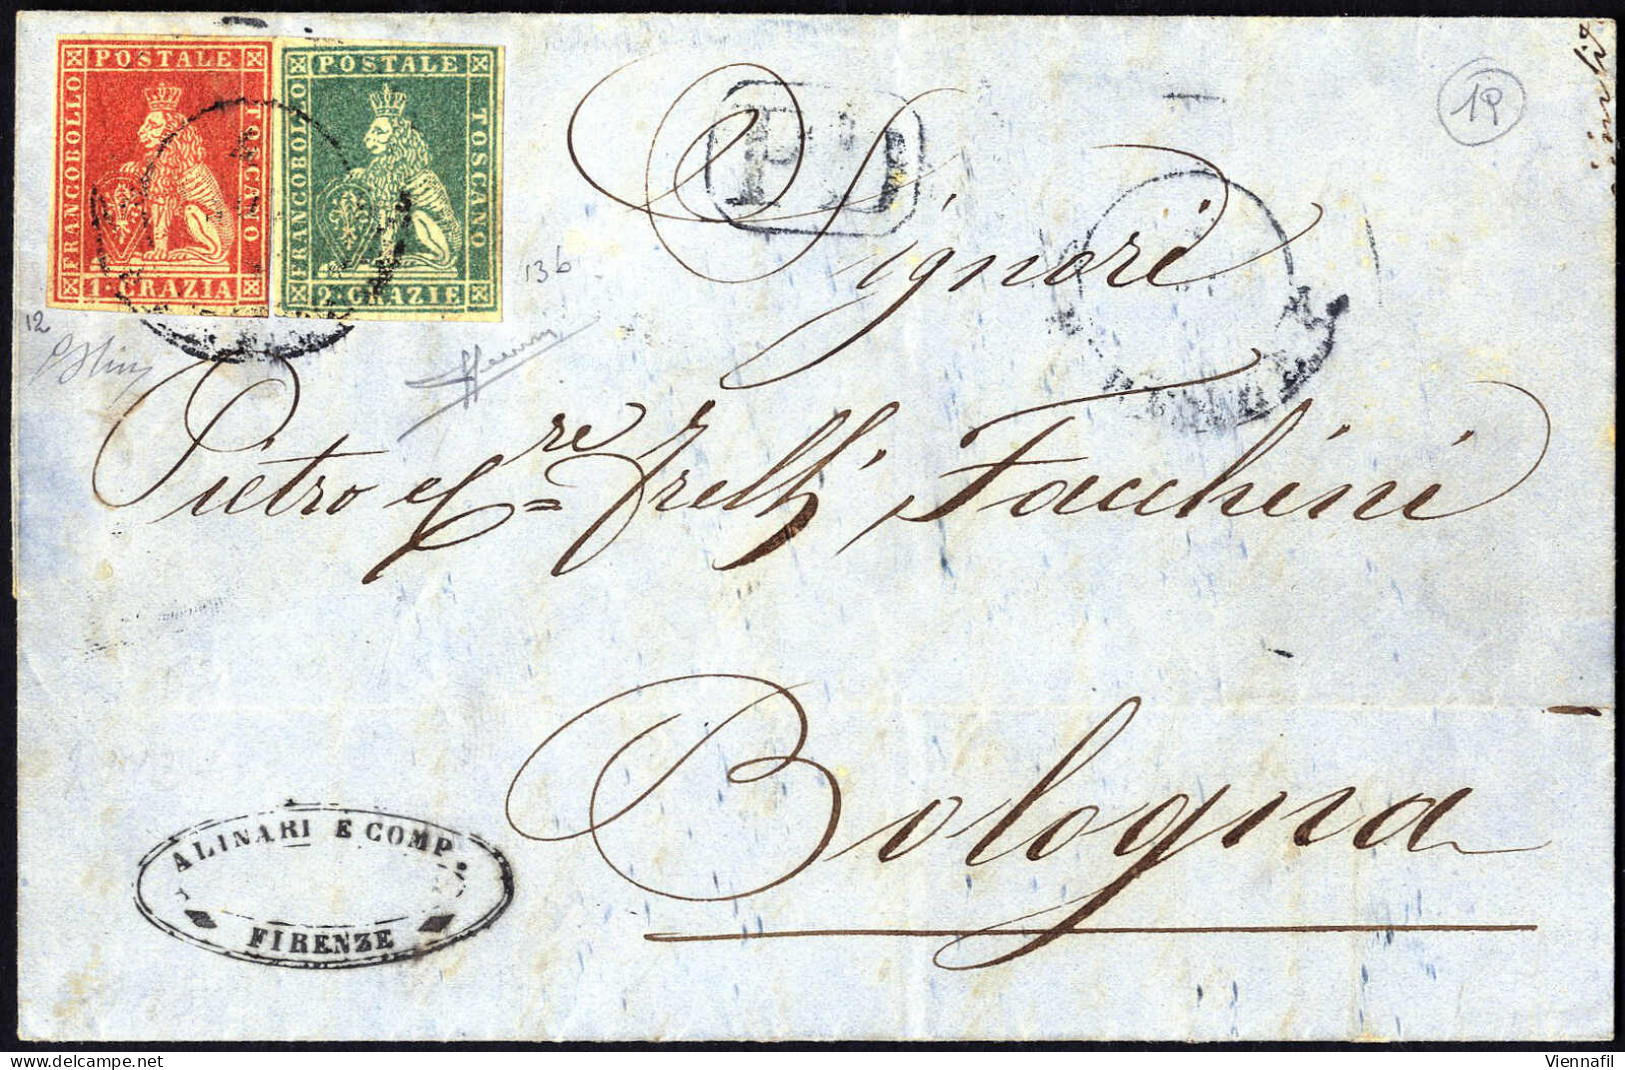 POSTALE
FRANCOBOLLO
TOSCANO
1·CRAZIA
POSTALE
FRANCOBOLLO
TOSCANO
2·CRAZIE
PD
19
12
13b
Signori
Pietro e Gre frelli Facchini
Bologna
ALINARI E COMP.
FIRENZE
Viennafil